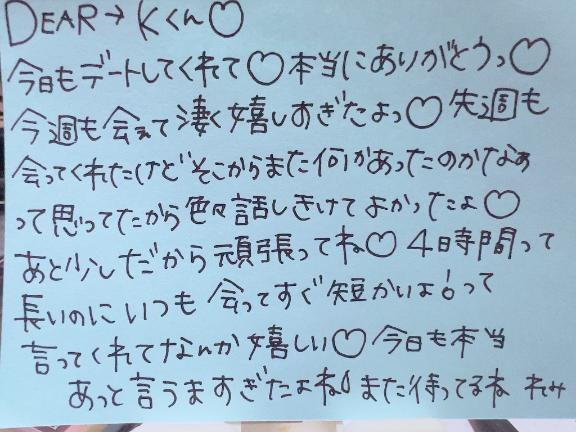 DEAR→Kくん♡
今日もデートしてくれて♡本当にありがとうっ♡
今週も会えて凄く嬉しすぎたよっ♡先週も
会ってくれたけどそこからまた何があったのかなぁ
って思ってたから色々話しきけてよかったよ♡
あと少しだから頑張ってね♡4時間って
長いのにいつも会ってすぐ短かいよ!って
言ってくれてなんか嬉しい♡今日も本当
あっと言うますぎたよね!また待ってるね れみ